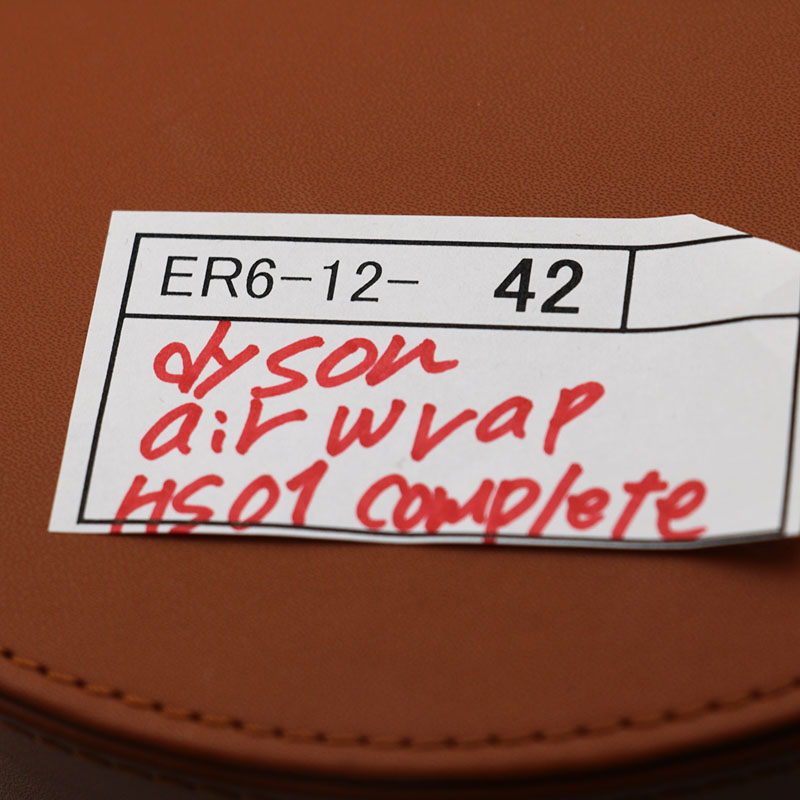 ER6-12- 42
dyson
air wrap
HS01 complete